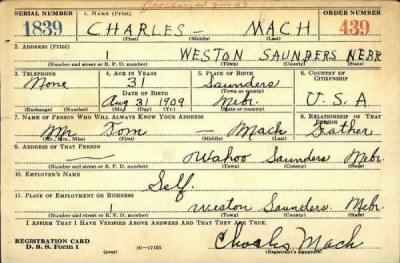 SERIAL NUMBER 1. NAME (Print) ORDER NUMBER
1839 CHARLES – MACH 439
(First) (Middle) (Last)
2. ADDRESS (Print)
1 WESTON SAUNDERS NEBR
(Number and street or R. F. D. number) (Town) (County) (State)
3. TELEPHONE 4. AGE IN YEARS 5. PLACE OF BIRTH 6. COUNTRY OF CITIZENSHIP
None 31 Saunders
DATE OF BIRTH (Town or county)
Aug 31 1909 Nebr. U.S.A
(Exchange) (Number) (Mo.) (Day) (Yr.) (State or country)
7. NAME OF PERSON WHO WILL ALWAYS KNOW YOUR ADDRESS 8. RELATIONSHIP OF THAT PERSON
Mr Tom – Mach Father
(Mr., Mrs., Miss) (First) (Middle) (Last)
9. ADDRESS OF THAT PERSON
– Wahoo Saunders Nebr.
(Number and street or R. F. D. number) (Town) (County) (State)
10. EMPLOYER'S NAME
Self.
11. PLACE OF EMPLOYMENT OR BUSINESS
1 Weston Saunders. Nebr.
(Number and street or R. F. D. number) (Town) (County) (State)
I AFFIRM THAT I HAVE VERIFIED ABOVE ANSWERS AND THAT THEY ARE TRUE.
REGISTRATION CARD
D. S. S. Form 1 (over) 16—17105 Charles Mach
(Registrant's signature)